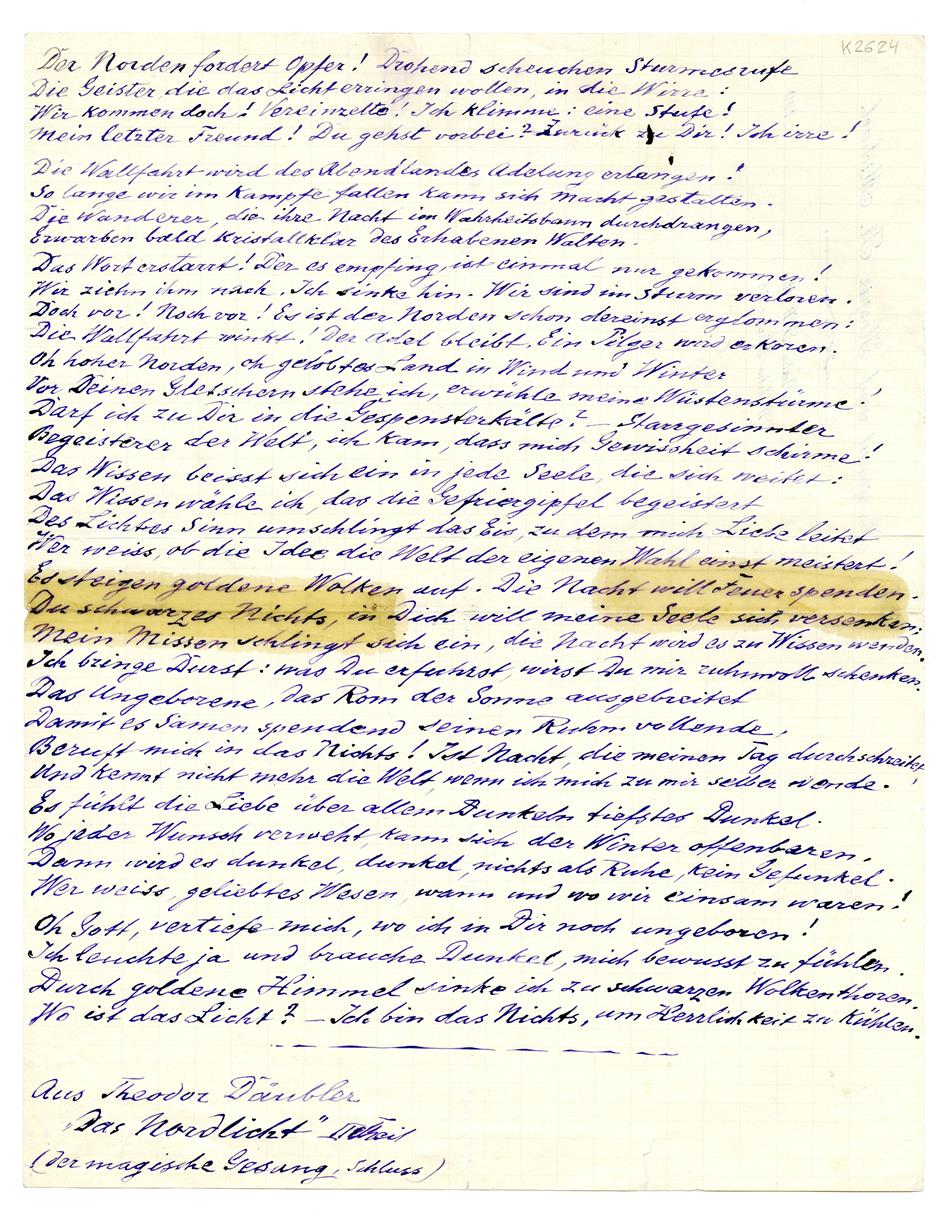 K2624
Der Norden fordert Opfer! Drohend scheuchen Sturmesrufe
Die Geister, die das Licht erringen wollen, in die Wirre:
Wir kommen doch! Vereinzelte! Ich klimme: eine Stufe!
Mein letzter Freund! Du gehst vorbei? Zurück zu Dir! Ich irre!
Die Wallfahrt wird des Abendlandes Adelung erlangen!
So lange wir im Kampfe fallen kann sich Macht gestalten.
Die Wanderer, die ihre Nacht im Wahrheitsbann durchdrangen,
Erwarben bald Kristallklar des Erhabenen Walten.
Das Wort erstarrt! Der es empfing, ist einmal nur gekommen!
Wir ziehn ihm nach. Ich sinke hin. Wir sind im Sturm verloren.
Doch vor! Noch vor! Es ist der Norden schon dereinst erglommen:
Die Wallfahrt winkt! Der Adel bleibt. Ein Pilger wird erkoren.
Oh hoher Norden, oh gelobtes Land in Wind und Winter
Vor Deinen Gletschern stehe ich, erwühle meine Wüstenstürme!
Darf ich zu Dir in die Gespensterkälte? — Starrgesinnter
Begeisterer der Welt, ich kam, dass mich Gewissheit schirme!
Das Wissen beisst sich ein in jede Seele, die sich weitet:
Das Wissen wähle ich, das die Gefriergipfel begeistert
Des Lichtes Sinn umschlingt das Eis, zu dem mich Liebe leitet
Wer weiss, ob die Idee die Welt der eigenen Wahl einst meistert!
Es steigen goldene Wolken auf. Die Nacht will Feuer spenden.
Du schwarzes Nichts, in Dich will meine Seele sich versenken:
Mein Missen schlingt sich ein, die Nacht wird es zu Wissen wenden.
Ich bringe Durst: was Du erfuhrst, wirst Du mir ruhmvoll schenken.
Das Ungeborene, das Rom der Sonne ausgebreitet
Damit es Samen spendend seinen Ruhm vollende,
Beruft mich in das Nichts! Ist Nacht, die meinen Tag durchschreitet
Und kennt nicht mehr die Welt, wenn ich mich zu mir selber wende.
Es fühlt die Liebe über allem Dunkeln tiefstes Dunkel.
Wo jeder Wunsch verweht, kann sich der Winter offenbaren.
Dann wird es dunkel, dunkel, nichts als Ruhe, kein Gefunkel.
Wer weiss, geliebtes Wesen, wann und wo wir einsam waren!
Oh Gott, vertiefe mich, wo ich in Dir noch ungeboren!
Ich leuchte ja und brauche Dunkel, mich bewusst zu fühlen.
Durch goldene Himmel sinke ich zu schwarzen Wolkenthoren.
Wo ist das Licht? — Ich bin das Nichts, um Herrlichkeit zu Kühlen.
Aus Theodor Däubler
"Das Nordlicht" II Theil
(Der magische Gesang, Schluss)